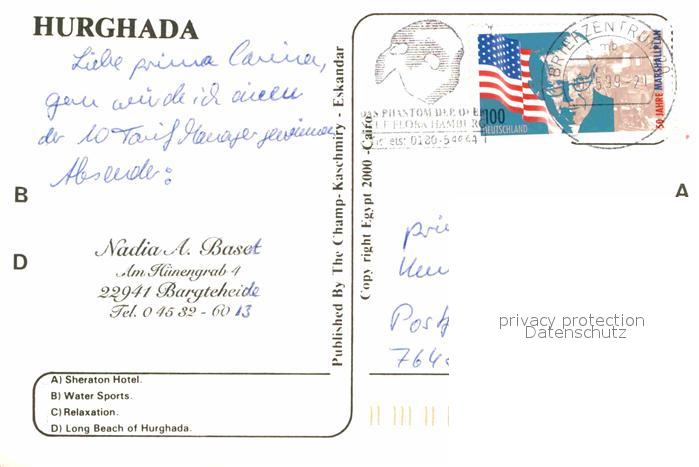 HURGHADA
Liebe prima Carina,
gern würde ich einen
der 10 Tarif Manager gewinnen
Absender:
B
D
A
Nadia A. Baset
Am Hünengrab 4
22941 Bargteheide
Tel. 0 45 32 - 60 13
A) Sheraton Hotel.
B) Water Sports.
C) Relaxation.
D) Long Beach of Hurghada.
Published By The Champ-Kaschmiry - Eskandar
Copy right Egypt 2000 -Cairo
DAS PHANTOM DER OPER
FLORA HAMBURG
100
DEUTSCHLAND
50 JAHRE MARSHALLPLAN
BRIEFZENTRUM
mb
Post
privacy protection
Datenschutz
764